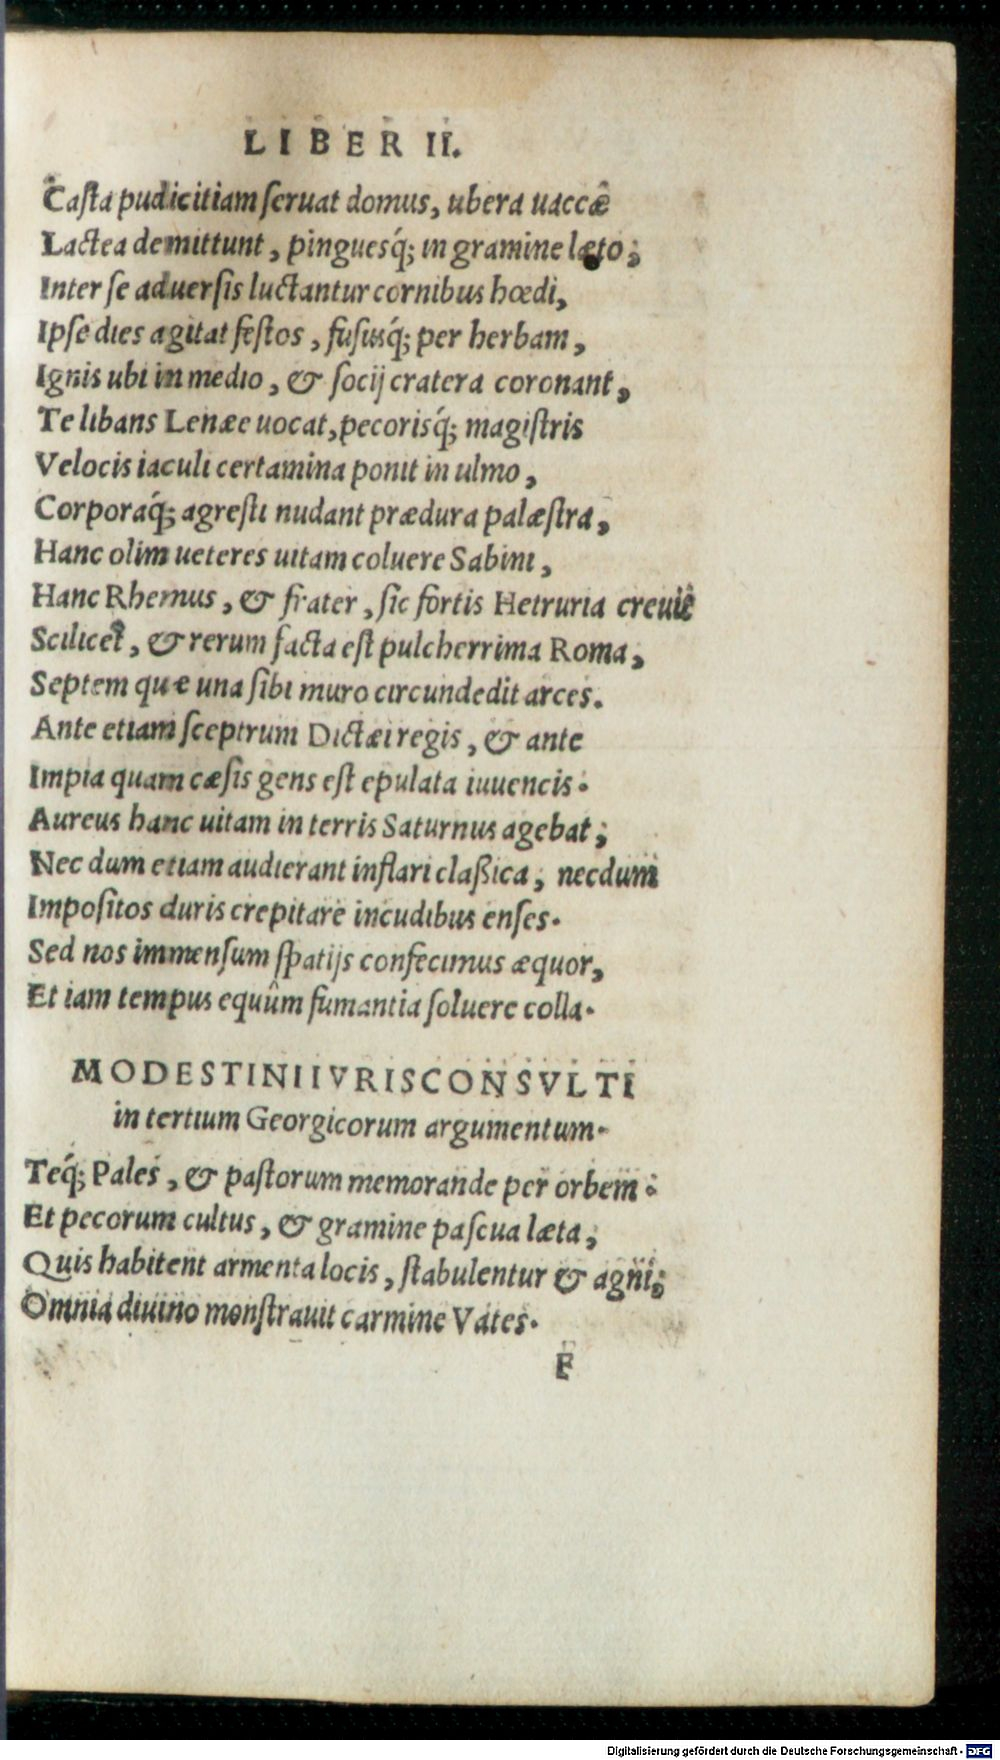 LIBER II.
Caſta pudicitiam ſeruat domus, ubera uaccæ
Lactea demittunt, pinguesq́; in gramine læto;
Inter ſe aduerſis luctantur cornibus hœdi,
Ipſe dies agitat feſtos, fuſusq́; per herbam,
Ignis ubi in medio, & ſocij cratera coronant,
Te libans Lenæe uocat, pecorisq́; magiſtris
Velocis iaculi certamina ponit in ulmo,
Corporaq́; agreſti nudant prædura palæſtra,
Hanc olim ueteres uitam coluere Sabini,
Hanc Rhemus, & frater, ſic fortis Hetruria creuit
Scilicet, & rerum facta eſt pulcherrima Roma,
Septem quæ una ſibi muro circundedit arces.
Ante etiam ſceptrum Dictæi regis, & ante
Impia quam cæſis gens eſt epulata iuuencis.
Aureus hanc uitam in terris Saturnus agebat;
Nec dum etiam audierant inflari claßica, necdum
Impoſitos duris crepitare incudibus enſes.
Sed nos immenſum ſpatijs confecimus æquor,
Et iam tempus equûm fumantia ſoluere colla.
MODESTINI IVRISCONSVLTI
in tertium Georgicorum argumentum.
Teq́; Pales, & paſtorum memorande per orbem:
Et pecorum cultus, & gramine paſcua læta;
Quis habitent armenta locis, ſtabulentur & agni;
Omnia diuino monſtrauit carmine Vates.
F
Digitalisierung gefördert durch die Deutsche Forschungsgemeinschaft - DFG